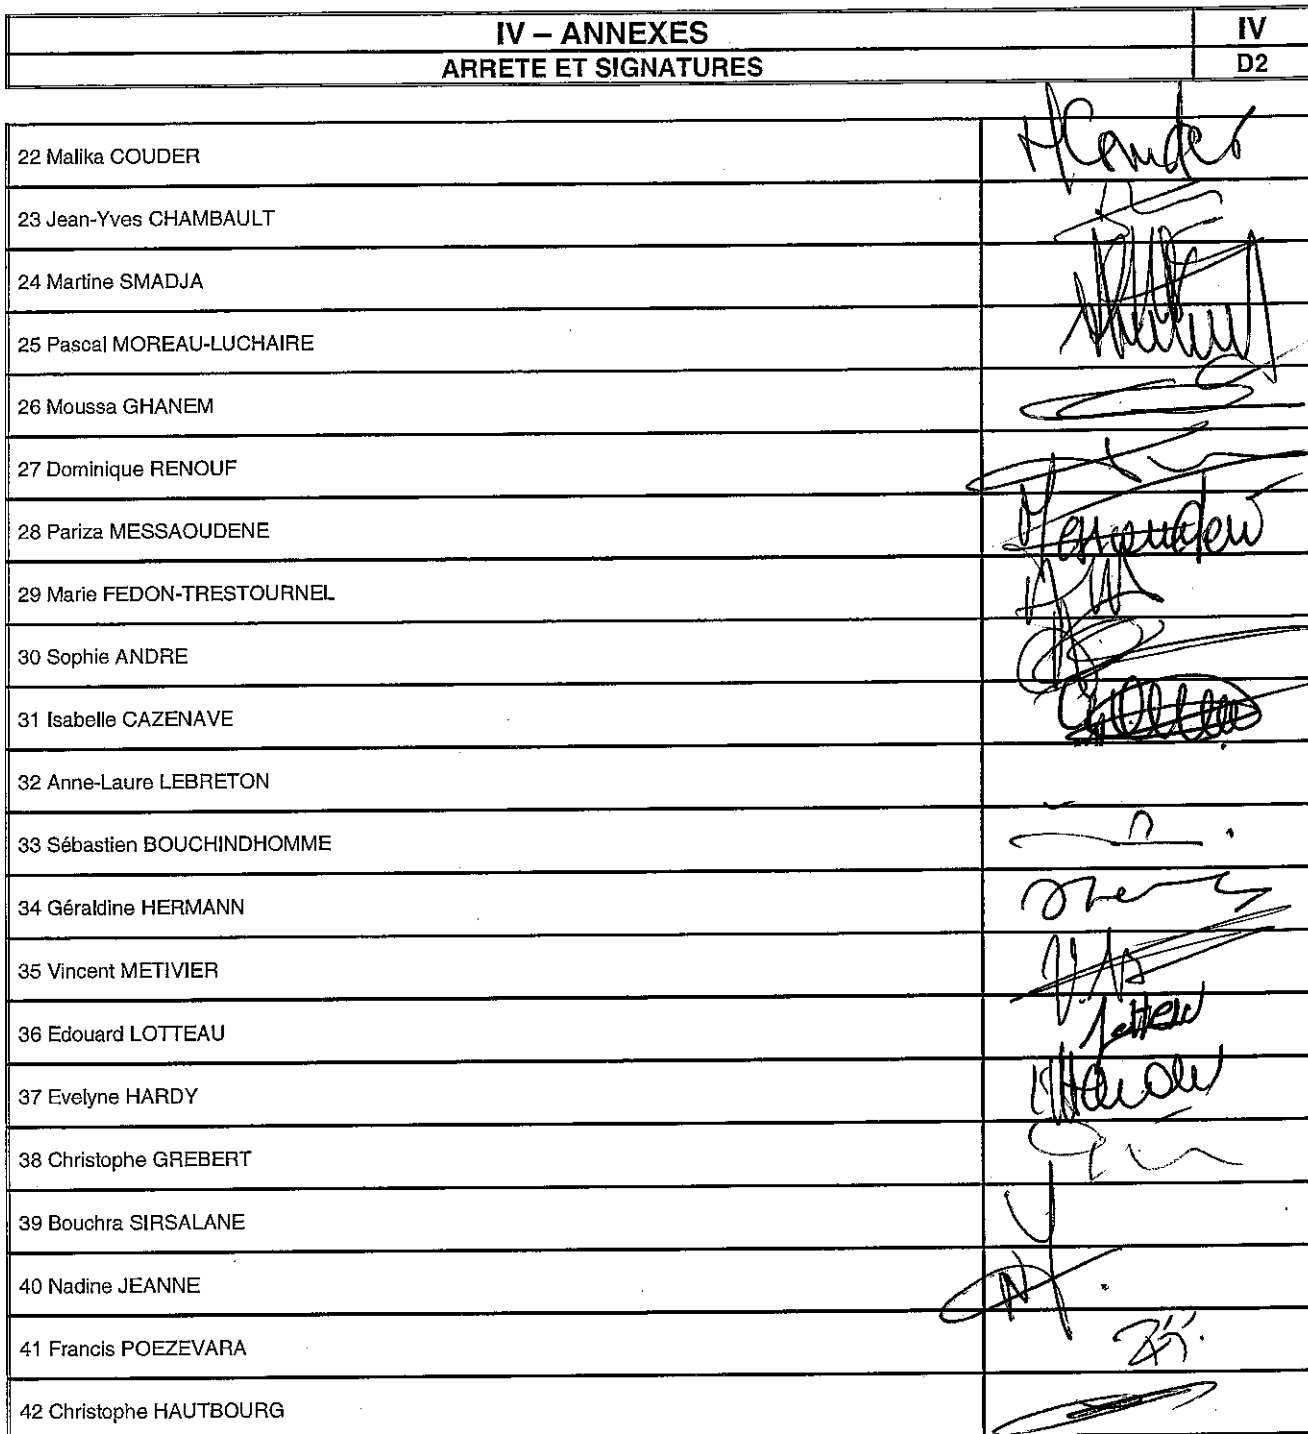 IV – ANNEXES
IV
ARRETE ET SIGNATURES
D2
22 Malika COUDER
23 Jean-Yves CHAMBAULT
24 Martine SMADJA
25 Pascal MOREAU-LUCHAIRE
26 Moussa GHANEM
27 Dominique RENOUF
28 Pariza MESSAOUDENE
29 Marie FEDON-TRESTOURNEL
30 Sophie ANDRE
31 Isabelle CAZENAVE
32 Anne-Laure LEBRETON
33 Sébastien BOUCHINDHOMME
34 Géraldine HERMANN
35 Vincent METIVIER
36 Edouard LOTTEAU
37 Evelyne HARDY
38 Christophe GREBERT
39 Bouchra SIRSALANE
40 Nadine JEANNE
41 Francis POEZEVARA
42 Christophe HAUTBOURG